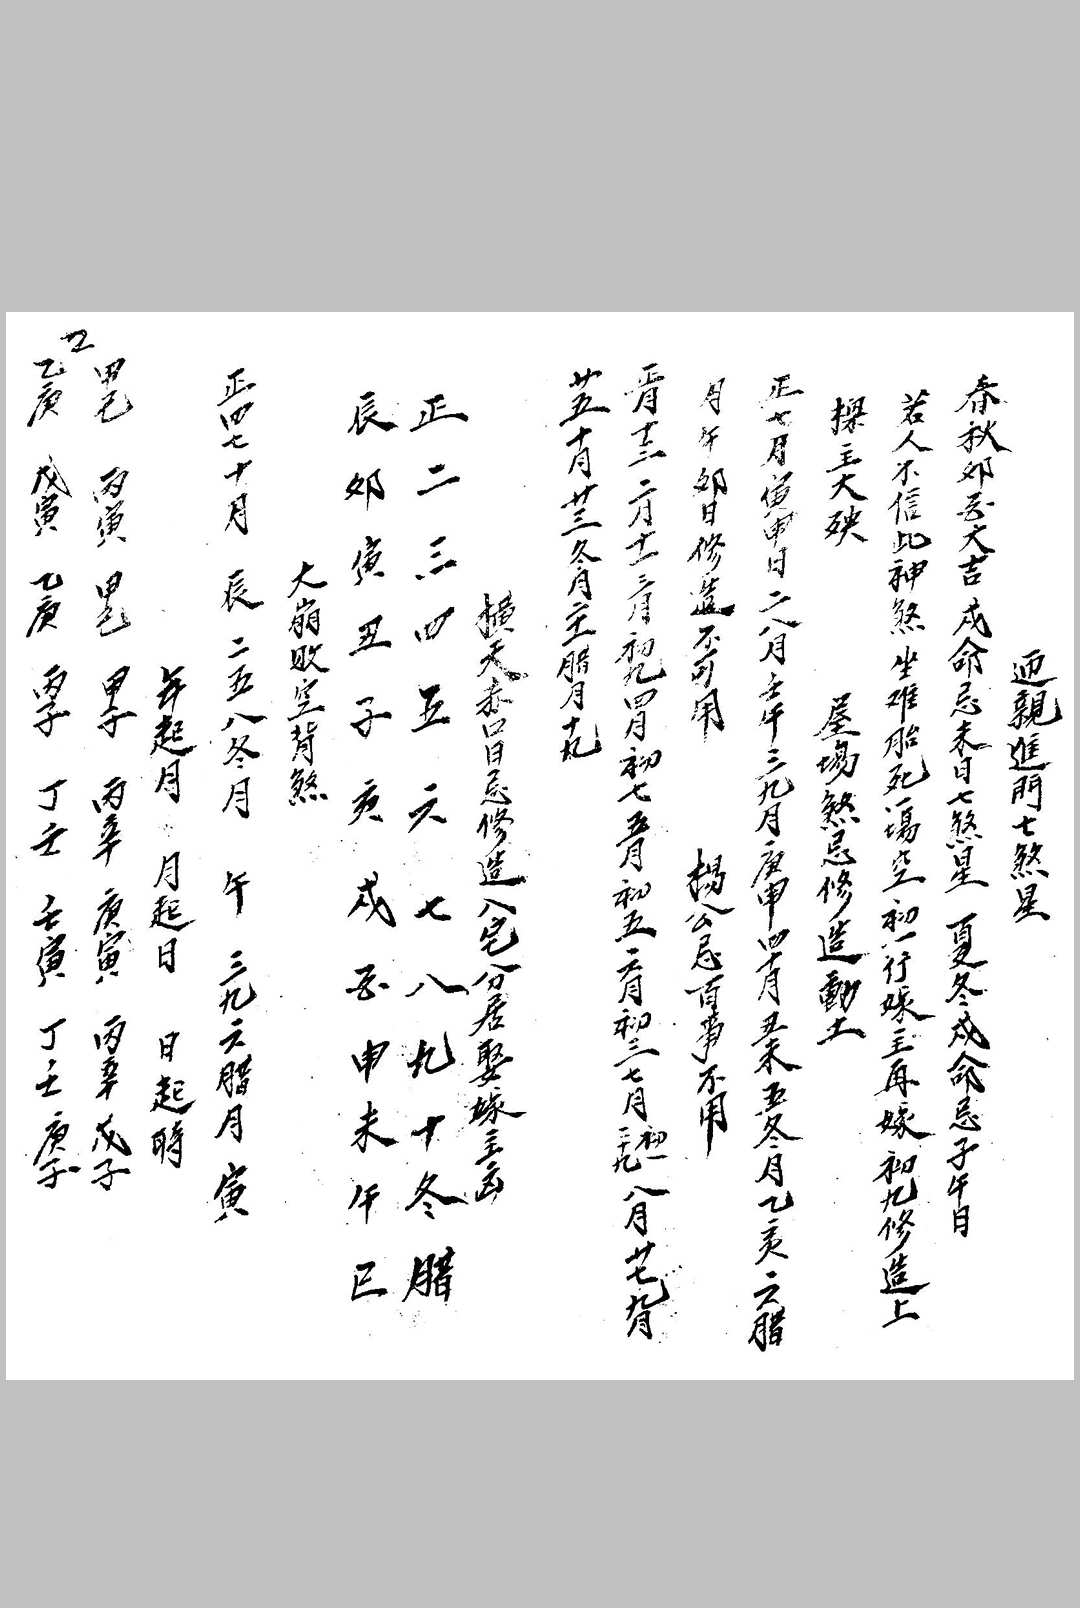 迎親進門七煞星
春秋卯酉大吉 戍命忌未日七煞星 夏冬戍命忌子午日
若人不信此神煞 坐难胎死墒空 初一行嫁主再嫁 初九修造上
樑主大殃 屋場煞忌修造動土
正七月寅申日 二八月壬午 三九月庚申 四十月丑未 五冬月乙亥 六腊
月午卯日修造不可用 楊公忌百事不用
正月十三 二月十一 三月初九 四月初七 五月初五 六月初三 七月初一二十九 八月廿七 九月
廿五 十月廿三 冬月二十一 腊月十九
橫天赤口日忌修造入宅分居娶嫁主凶
正二三四五六七八九十冬腊
辰卯寅丑子亥戍酉申未午巳
大崩敗空背煞
正四七十月 辰 二五八冬月 午 三九六腊月 寅
年起月 月起日 日起時
甲己 丙寅 甲己 甲子 丙辛 庚寅 丙辛 戊子
乙庚 戊寅 乙庚 丙子 丁壬 壬寅 丁壬 庚子